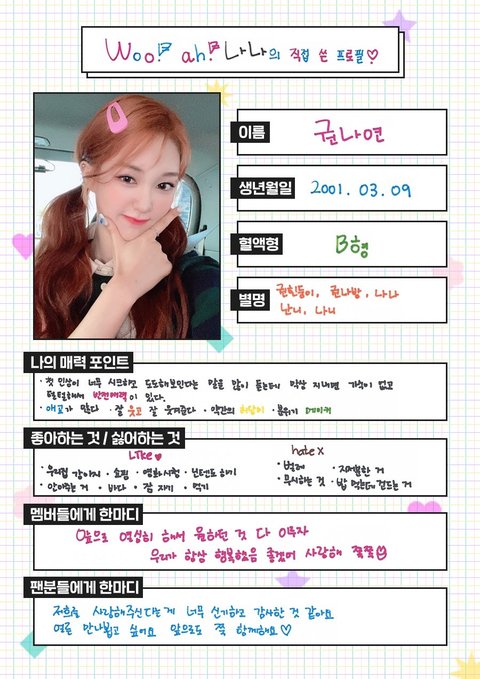 Woo! ah! 나나의 직접 쓴 프로필♡
이름 권나연
생년월일 2001. 03. 09
혈액형 B형
별명 권흰둥이, 권나밤, 나나
난니, 나니
나의 매력 포인트
· 첫 인상이 너무 시크하고 도도해보인다는 말을 많이 듣는데 막상 지내면 가식이 없고
털털해서 반전매력이 있다.
· 애교가 많다 · 잘 웃고 잘 웃겨준다 · 약간의 허당미 · 분위기 메이커
좋아하는 것 / 싫어하는 것
Like ♥
· 우리집 강아지 · 쇼핑 · 영화시청 · 닌텐도 하기
· 안아주는 거 · 바다 · 잠 자기 · 먹기
hate x
· 벌레 · 지저분한 거
· 무시하는 것 · 밥 먹는데 건드는 거
멤버들에게 한마디
앞으로 열심히 해서 원하던 것 다 이루자
우리가 항상 행복했음 좋겠어 사랑해 쭉쭉
팬분들에게 한마디
저희를 사랑해주신다는게 너무 신기하고 감사한 것 같아요
얼른 만나뵙고 싶어요 앞으로도 쭉 함께해요♡